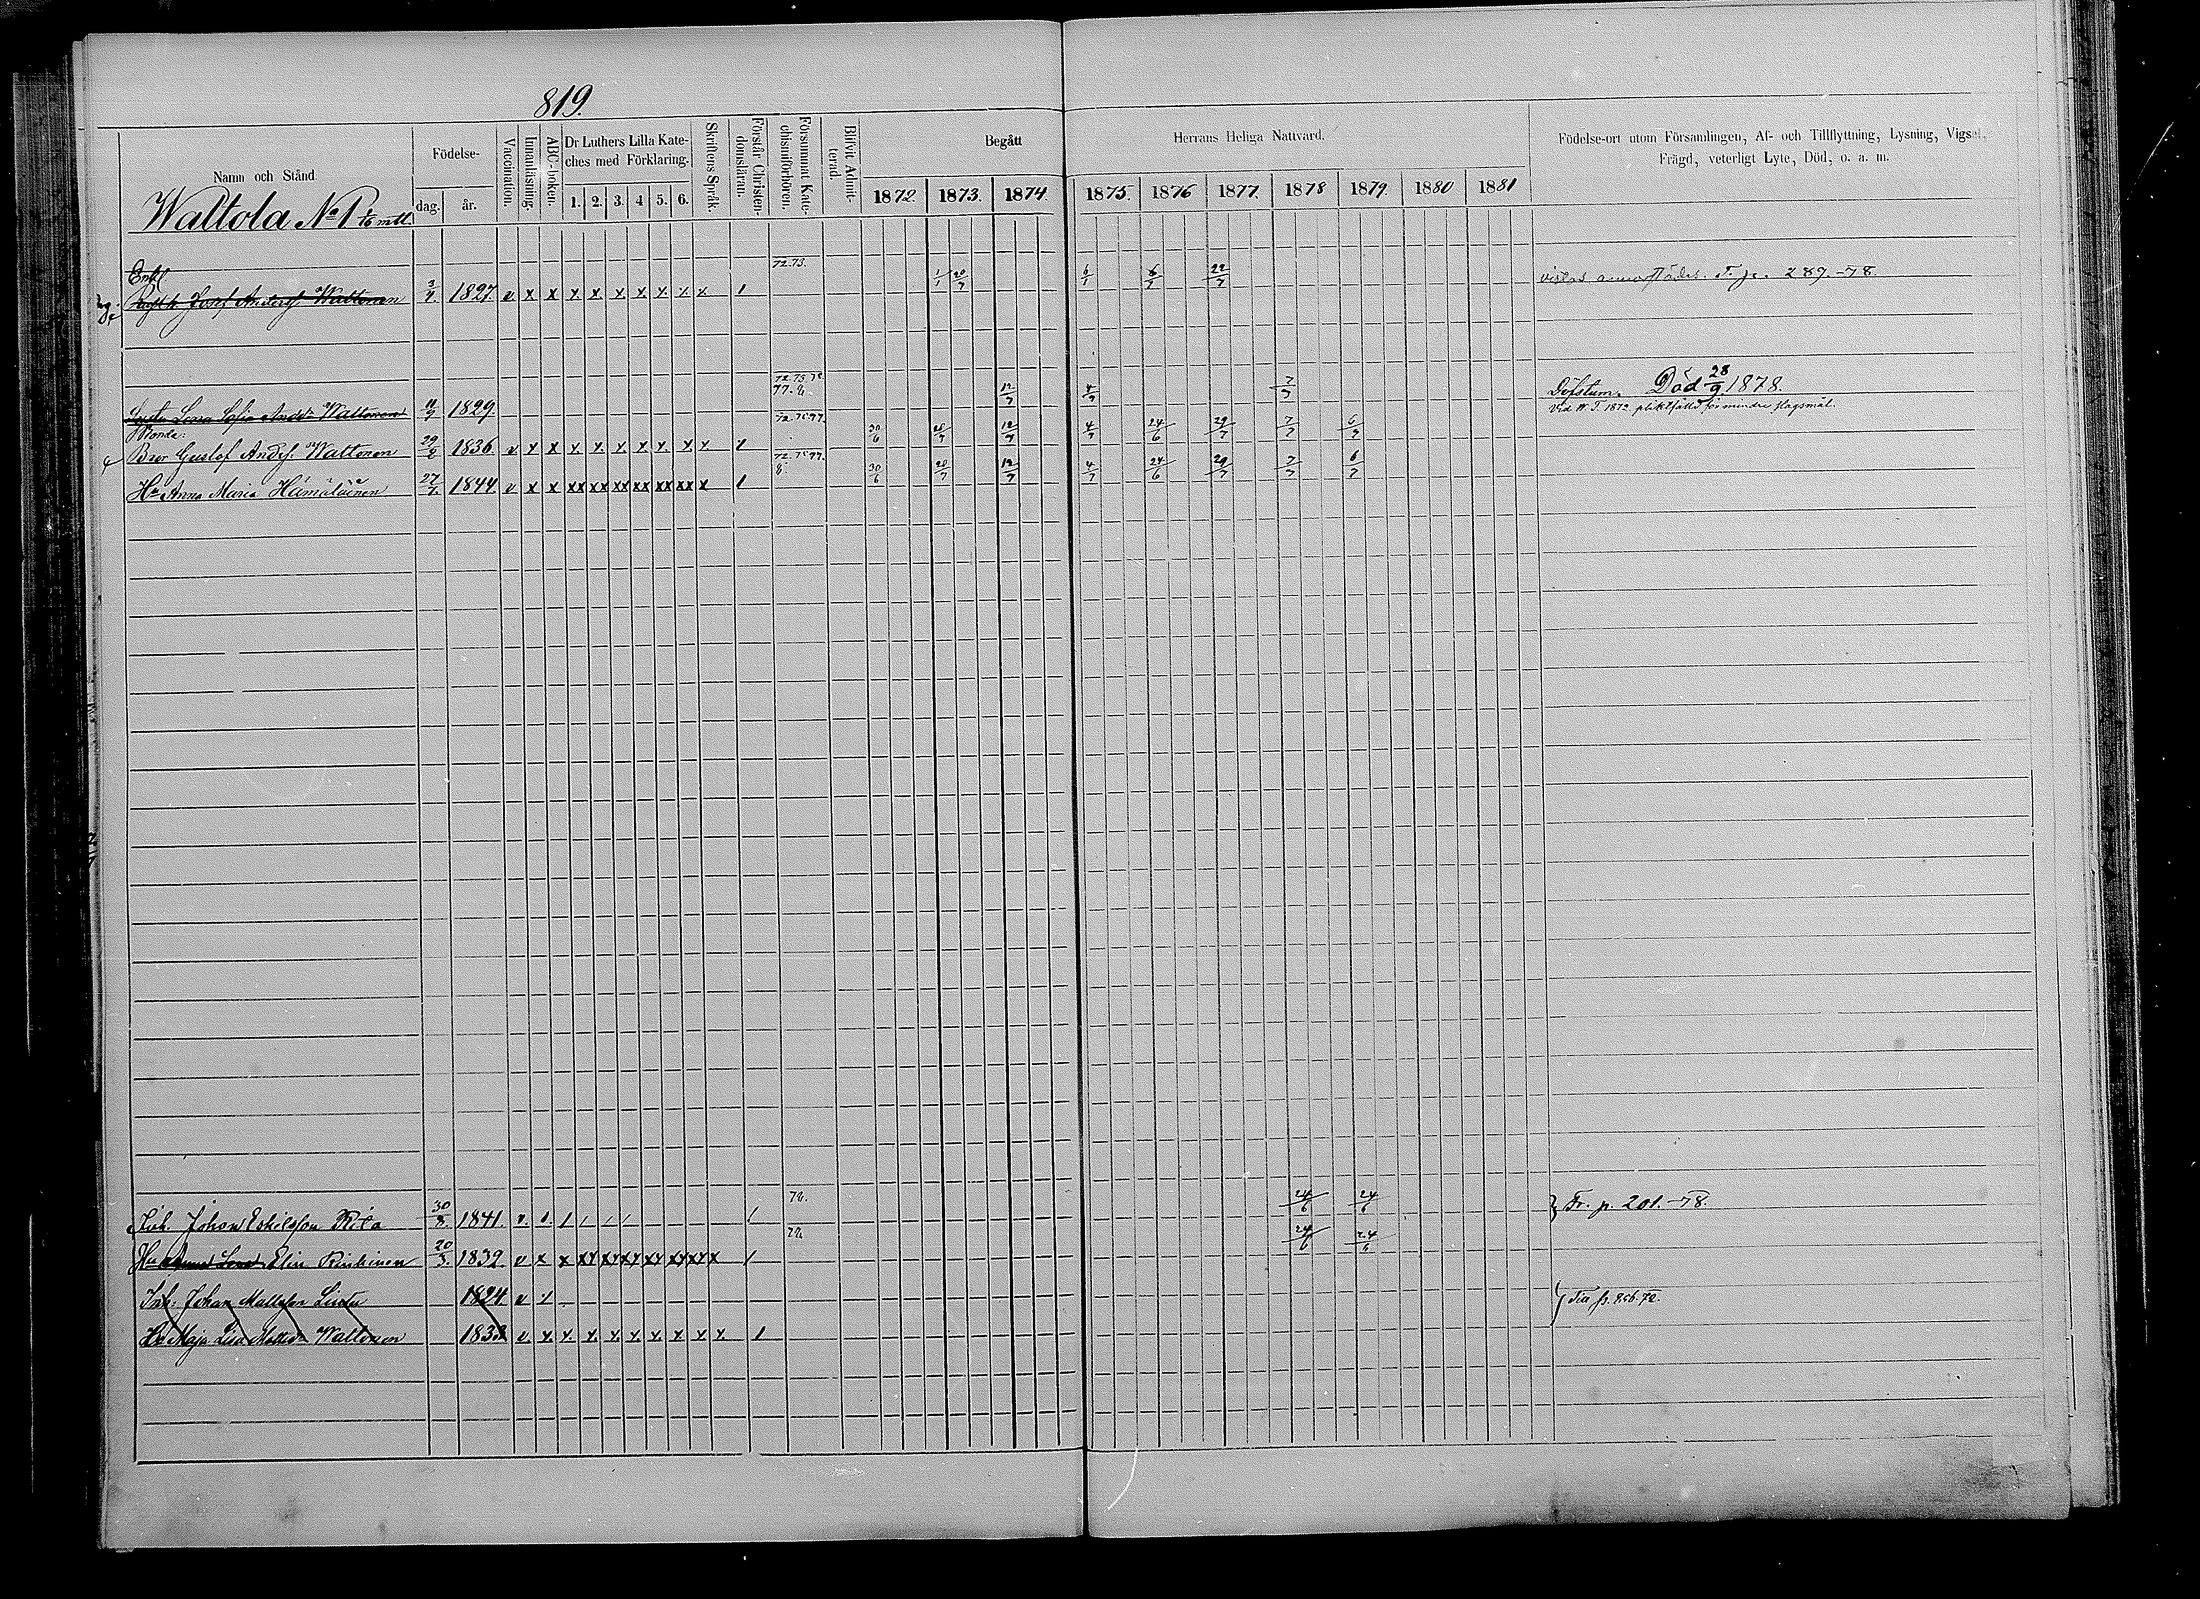 819.
Namn och Stånd.
Födelse-
dag.
år.
Vaccination.
Innanläsning.
ABC-boken.
Dr Luthers Lilla Kate-
ches med Förklaring.
1. 2. 3. 4 5. 6.
Skriftens Språk.
Förstår Christen-
domsläran.
Försummat Kate-
chismiförhören.
Blifvit Admit-
terad.
Begått
Herrans Heliga Nattvard.
1872. 1873. 1874. 1875. 1876 1877. 1878 1879. 1880 1881
Födelse-ort utom Församlingen, Af- och Tillflyttning, Lysning, Vigsel,
Frägd, veterligt Lyte, Död, o. a. m.
Waltola No 1
Enkl
Josef Andersf Waltonen 3/4 1827. v x x x x x x x x x 1 72.73. 1/1 20/7 6/1 6/7 22/7 p. 289.-78.
Lena Sofia Andsdr Waltonen 11/9 1829. 12/7 4/7 7/7 Döfstum. Död 28/9 1878.
Vid W. T. 1872 pliktfälld för mindre slagsmål.
Bror Gustaf Andsf. Waltonen 29/2 1836 v x x x x x x x x x 1 30/6 20/7 12/7 4/7 24/6 29/7 7/7 6/7
Hu Anna Maria Hämäläinen 27/7. 1844. v x x xx xx xx xx xx xx x 1 30/6 20/7 12/7 4/7 24/6 29/7 7/7 6/7
Inh. Johan Eskilsson 30/8. 1841. 24/6 24/6 Fr. p. 201.-78.
Hu Elin 20/3. 1832. v x x 1 24/6 24/6
Inh. Johan Mattsson Lindu 1824 v
Hu Maja Lisa Mattsdr Waltonen 183 v x x x x x x x x x 1